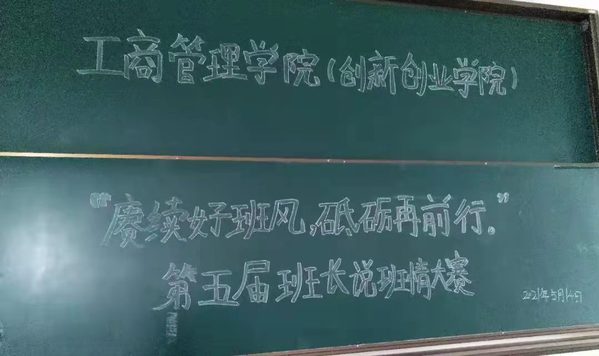 工商管理学院(创新创业学院)
“赓续好班风,砥砺再前行。”
第五届班长说班情大赛
2021年5月14日